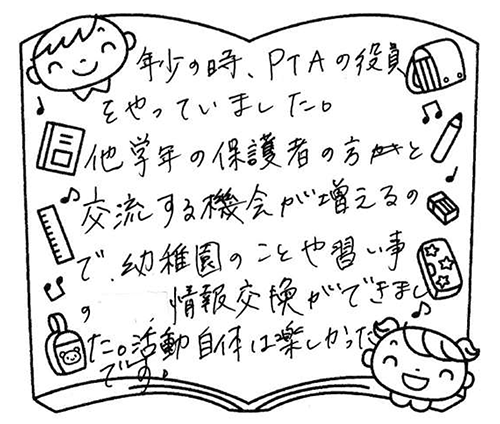 年少の時、PTAの役員
をやっていました。
他学年の保護者の方と
交流する機会が増えるの
で、幼稚園のことや習い事
の 情報交換ができまし
た。活動自体は楽しかった
です。